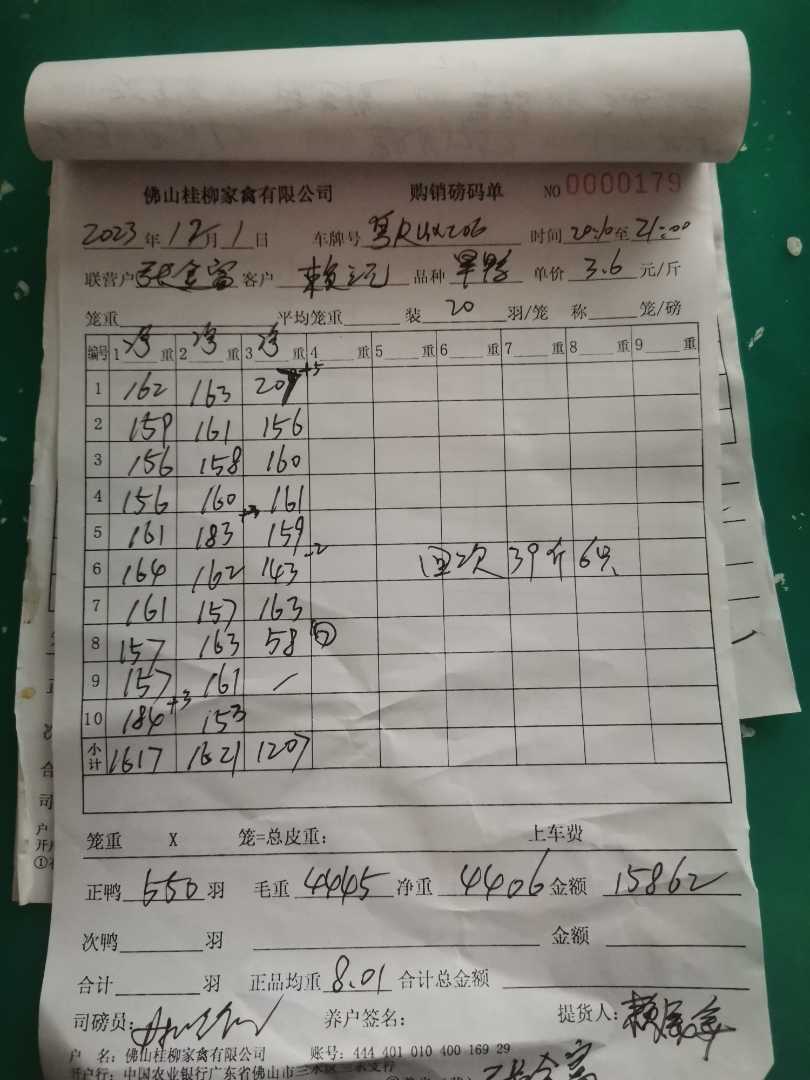 佛山桂柳家禽有限公司 购销磅码单 NO 0000179
2023 年 12 月 1 日 车牌号 时间 20:10 至 21:00
联营户 张金富 客户 赖 品种 单价 3.6 元/斤
笼重 平均笼重 装 20 羽/笼 称 笼/磅
编号 1 净 重 2 净 重 3 净 重 4 重 5 重 6 重 7 重 8 重 9 重
1 162 163 207 +5
2 159 161 156
3 156 158 160
4 156 160 161
5 161 183 +3 159
6 164 162 143 -2 回次 39斤 6只
7 161 157 163
8 157 163 58 ⑦
9 157 161 /
10 184 +3 153
小计 1617 1621 1207
笼重 X 笼=总皮重: 上车费
正鸭 550 羽 毛重 4445 净重 4406 金额 15862
次鸭 羽 金额
合计 羽 正品均重 8.01 合计总金额
司磅员: 养户签名: 提货人: 赖
户 名: 佛山桂柳家禽有限公司 账号: 444 401 010 400 169 29
开户行: 中国农业银行广东省佛山市三水区三水支行